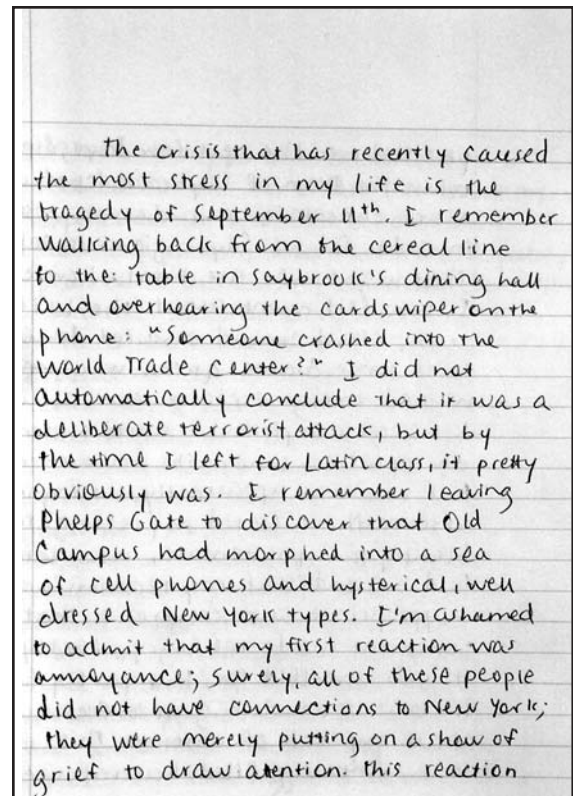 The crisis that has recently caused
the most stress in my life is the
tragedy of September 11th. I remember
walking back from the cereal line
to the table in Saybrook's dining hall
and overhearing the cardswiper on the
phone: "Someone crashed into the
World Trade Center?" I did not
automatically conclude that it was a
deliberate terrorist attack, but by
the time I left for Latin class, it pretty
obviously was. I remember leaving
Phelps Gate to discover that Old
Campus had morphed into a sea
of cell phones and hysterical, well
dressed New York types. I'm ashamed
to admit that my first reaction was
annoyance; surely, all of these people
did not have connections to New York;
they were merely putting on a show of
grief to draw atention. This reaction